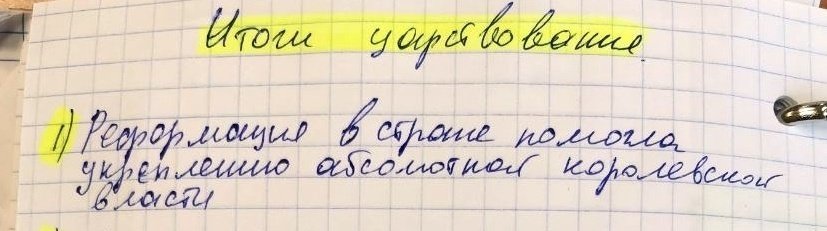 Итоги царствования
1) Реформация в стране помогла
укреплению абсолютной королевской
власти